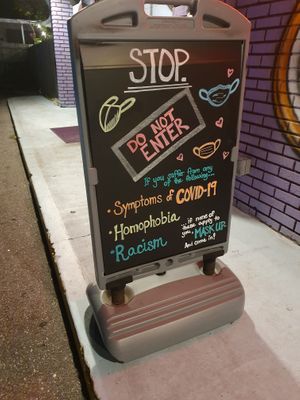 STOP.
DO NOT
ENTER
If you suffer from any
of the following...
• Symptoms of COVID-19
• Homophobia
• Racism
if none of
these apply to
you, MASK UP
And come in!